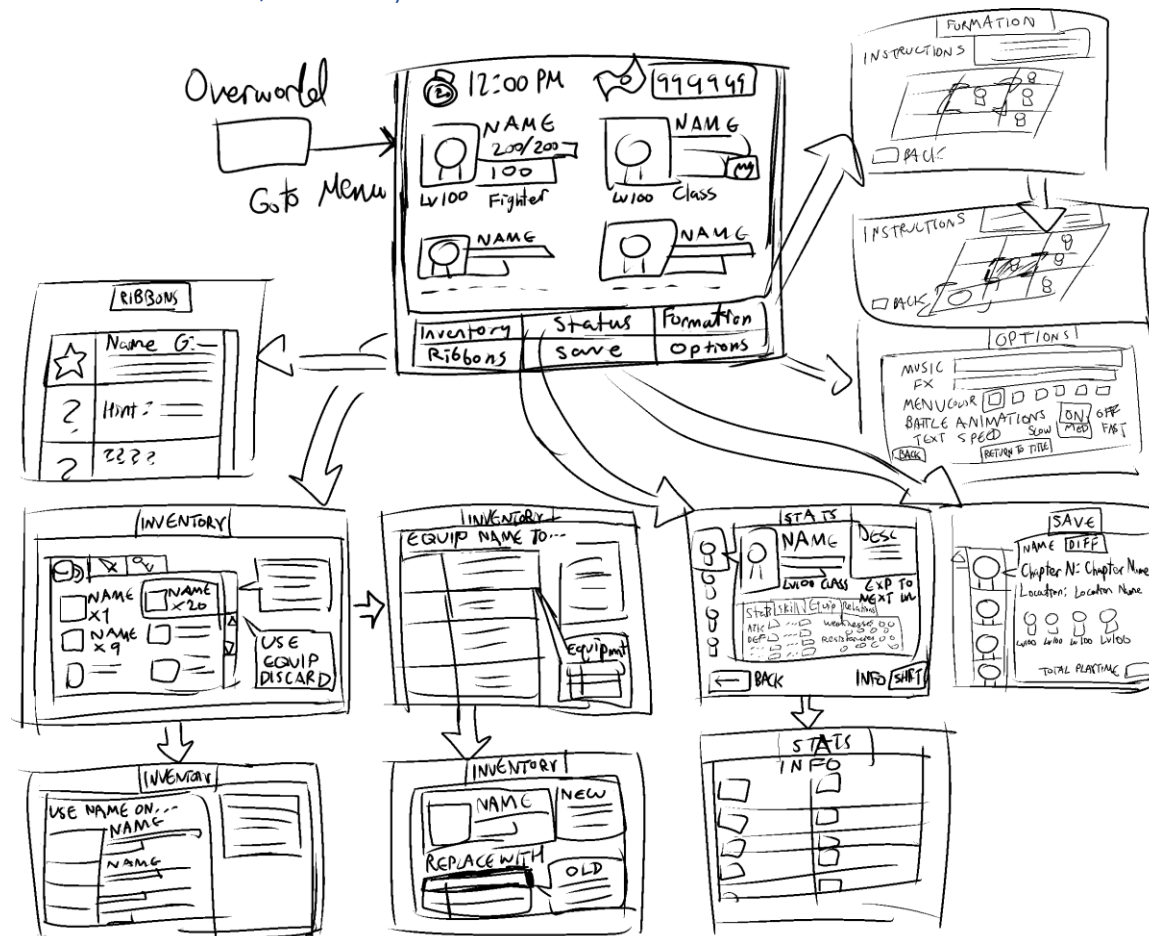 Overworld
Goto Menu
12:00 PM
999999
NAME
200/200
100
LV100 Fighter
NAME
LV100 Class
NAME
NAME
Inventory Status Formation
Ribbons Save Options
FORMATION
INSTRUCTIONS
BACK
INSTRUCTIONS
BACK
OPTIONS
MUSIC
FX
MENU COLOR
BATTLE ANIMATIONS ON OFF
TEXT SPEED SLOW MED FAST
BACK
RETURN TO TITLE
RIBBONS
Name G:
?
Hint:
?
????
INVENTORY
NAME
X1
NAME
X20
NAME
X9
USE
EQUIP
DISCARD
INVENTORY
EQUIP NAME TO...
Equipment
STATS
NAME
DESC
LV100 CLASS
EXP TO
NEXT LV
Stats Skill Equip Relations
ATK
DEF
Weaknesses
Resistances
BACK
INFO SHIFT
SAVE
NAME DIFF
Chapter N: Chapter Name
Location: Location Name
LV100 LV100 LV100 LV100
TOTAL PLAYTIME
INVENTORY
USE NAME ON...
NAME
NAME
INVENTORY
NAME
NEW
REPLACE WITH
OLD
STATS
INFO